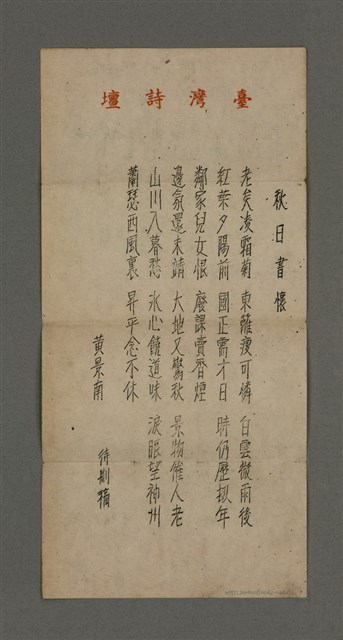 臺灣詩壇
秋日書懷
老矣凌霜菊 東籬瘦可憐 白雲微雨後
紅葉夕陽前 國正需才日 時仍歷劫年
鄰家兒女恨 廢課賣香煙
邊氛還未靖 大地又驚秋 景物催人老
山川入暮愁 冰心饒道味 淚眼望神州
蘭瑟西風裏 昇平念不休
黃景南
待刪稿